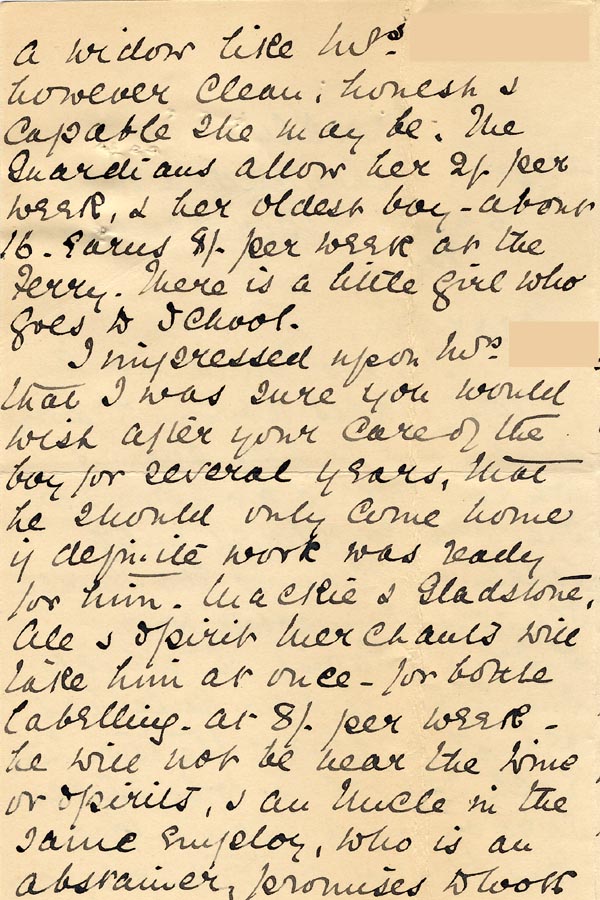 a widow like Mrs.
however clean, honest &
capable she may be. The
Guardians allow her 2/- per
week, & her oldest boy - about
16. Earns 8/- per week at the
Ferry. There is a little girl who
goes to School.
I impressed upon Mrs.
that I was sure you would
wish after your care of the
boy for several years, that
he should only come home
if definite work was ready
for him. Mackie & Gladstone,
Ale & Spirit Merchants will
take him at once - for bottle
labelling - at 8/- per week -
he will not be near the wine
or spirits, & an Uncle in the
same employ, who is an
abstainer, promises to look